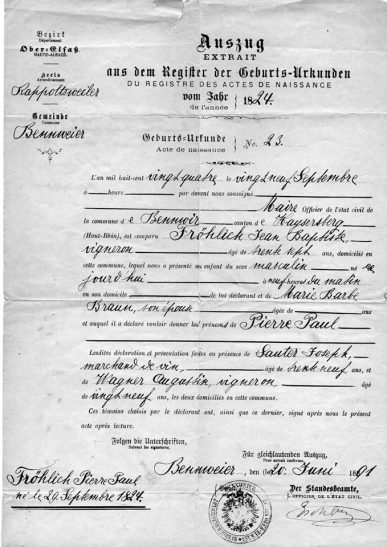 Bezirk
Département
Ober-Elsaß
HAUTE-ALSACE.
Kreis
Arrondissement
Rappoltsweiler
Gemeinde
Commune
Bennweier
Auszug
EXTRAIT
aus dem Register der Geburts-Urkunden
DU REGISTRE DES ACTES DE NAISSANCE
vom Jahr
de l'année
1824.
Geburts-Urkunde
Acte de naissance
No. 23.
L'an mil huit-cent vingt quatre le vingt neuf Septembre
à heure par devant nous soussigné
Maire Officier de l'état civil de
la commune de Bennwir canton de Kaysersberg
(Haut-Rhin), est comparu Fröhlich Jean Baptiste,
vigneron âgé de trente sept ans, domicilié en
cette commune, lequel nous a présenté un enfant du sexe masculin né ce
jourd'hui à neuf heures du matin
en son domicile de lui déclarant et de Marie Barbe
Braun, son épouse âgée de ans
et auquel il a déclaré vouloir donner les prénoms de Pierre Paul
Lesdites déclaration et présentation faites en présence de Sauter Joseph,
marchand de vin, âgé de trente neuf ans, et
de Wagner Augustin, vigneron âgé
de vingt neuf ans, les deux domiciliés en cette commune.
Ces témoins choisis par le déclarant ont, ainsi que ce dernier, signé après nous le présent
acte après lecture.
Folgen die Unterschriften,
Suivent les signatures.
Für gleichlautenden Auszug,
Pour extrait conforme
Bennweier, den (le) 20. Juni 1891
Fröhlich Pierre Paul
né le 29. Septembre 1824.
Der Standesbeamte,
L'OFFICIER DE L'ÉTAT CIVIL